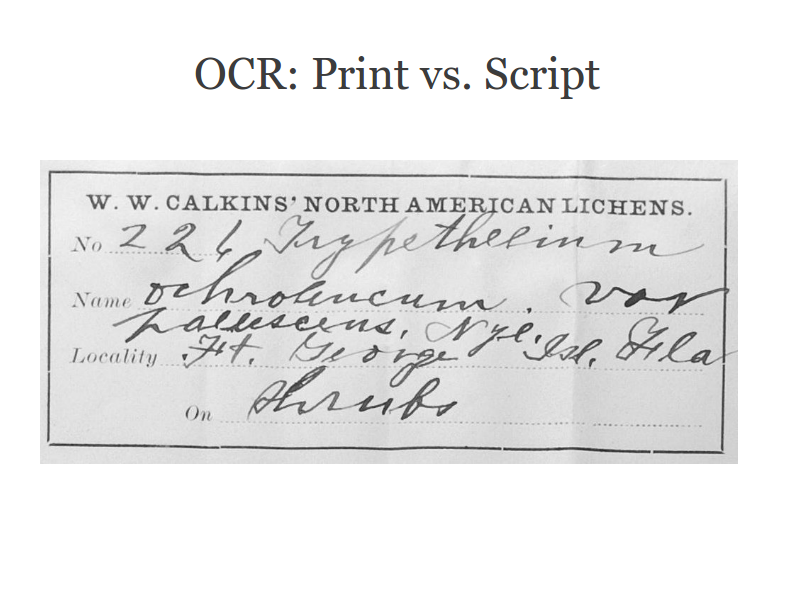 OCR: Print vs. Script
W. W. CALKINS' NORTH AMERICAN LICHENS.
No 226 Trypethelium
Name ochroleucum. var
pallescens, Nyl.
Locality Ft. George Isl. Fla
On shrubs